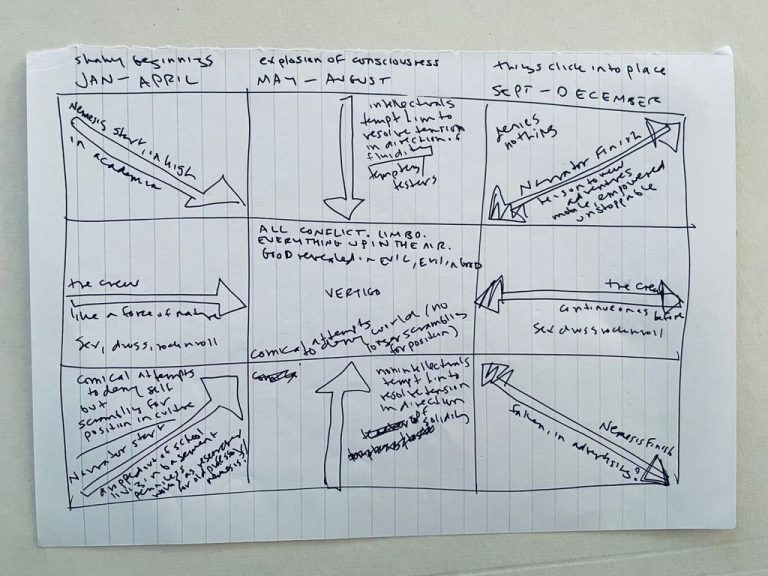 shaky beginnings
JAN - APRIL
explosion of consciousness
MAY - AUGUST
things click into place
SEPT - DECEMBER
Nemesis start, in high
in academia
intellectuals
tempt him to
resolve tension
in direction of
fluidity
tempters/
testers
denies
nothing
Narrator Finish
he is on to new
adventures
mobile, empowered
unstoppable
the crew
like a force of nature
Sex, drugs, rock n roll
ALL CONFLICT. LIMBO.
EVERYTHING UP IN THE AIR.
GOOD revealed in EVIL, EVIL in GOOD
VERTIGO
comical attempts
to deny world (no
longer scrambling
for position)
the crew
continue on as before
Sex, drugs, rock n roll
comical attempts
to deny self
but
scrambling for
position in culture
Narrator start
living in basement
penniless
nonintellectuals
tempt him to
resolve tension
in direction
of
solidity
Nemesis Finish
fallen, in advertising?